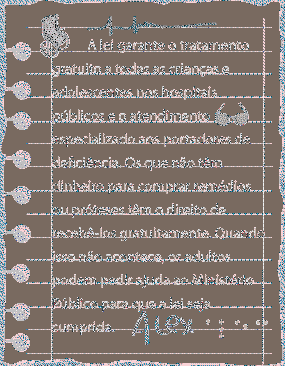 A lei garante o tratamento
gratuito a todas as crianças e
adolescentes nos hospitais
públicos e o atendimento
especializado aos portadores de
deficiência. Os que não têm
dinheiro para comprar remédios
ou próteses têm o direito de
recebê-los gratuitamente. Quando
isso não acontece, os adultos
podem pedir ajuda ao Ministério
Público para que a lei seja
cumprida.